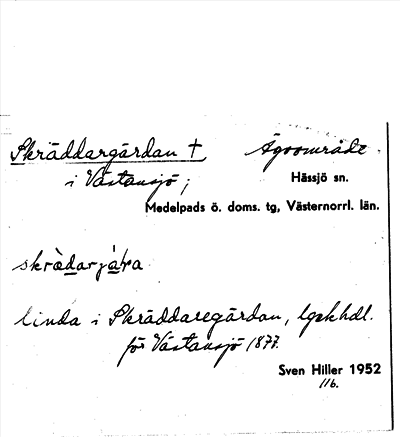 Skräddargärdan † Ägoområde.
i Västansjö; Hässjö sn.
Medelpads ö. doms. tg, Västernorrl. län.
linda i Skräddaregärdan, lgskhdl.
för Västansjö 1877.
Sven Hiller 1952
116.